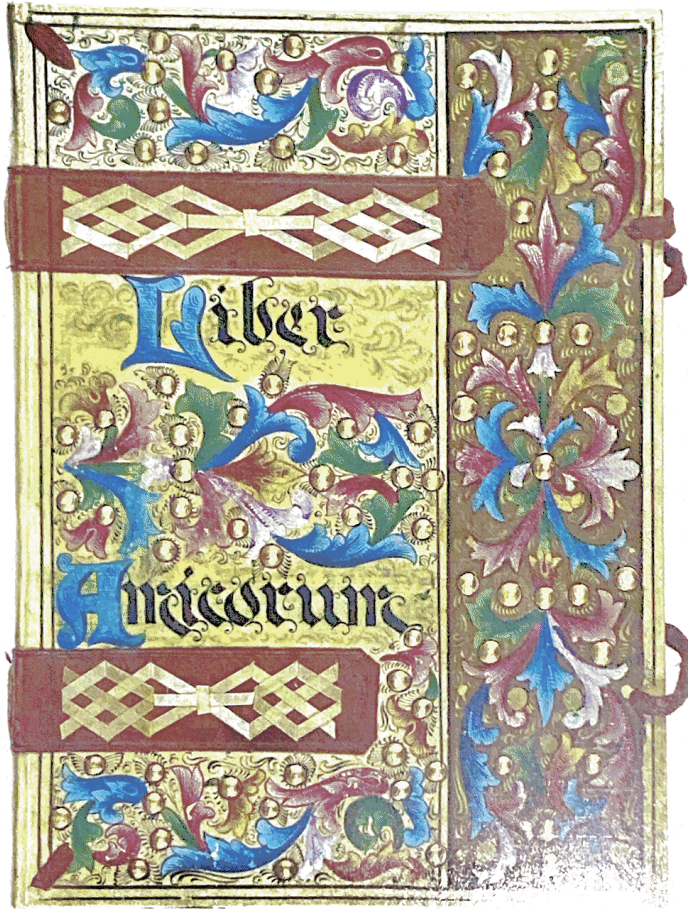 Liber
Amicorum